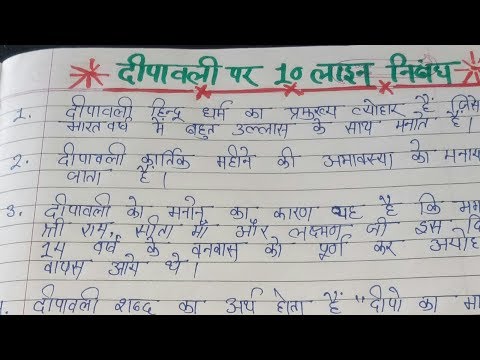 दीपावली पर 10 लाइन निबंध
1. दीपावली हिन्दू धर्म का प्रमुख्य त्योहार है जिसे
भारतवर्ष में बहुत उल्लास के साथ मनाते हैं।
2. दीपावली कार्तिक महीने की अमावस्या को मनाया
जाता है।
3. दीपावली को मनाने का कारण यह है कि
श्री राम, सीता माँ और लक्ष्मण जी इस
14 वर्ष के वनवास को पूर्ण कर
वापस आये थे।
दीपावली शब्द का अर्थ होता है "दीपो का